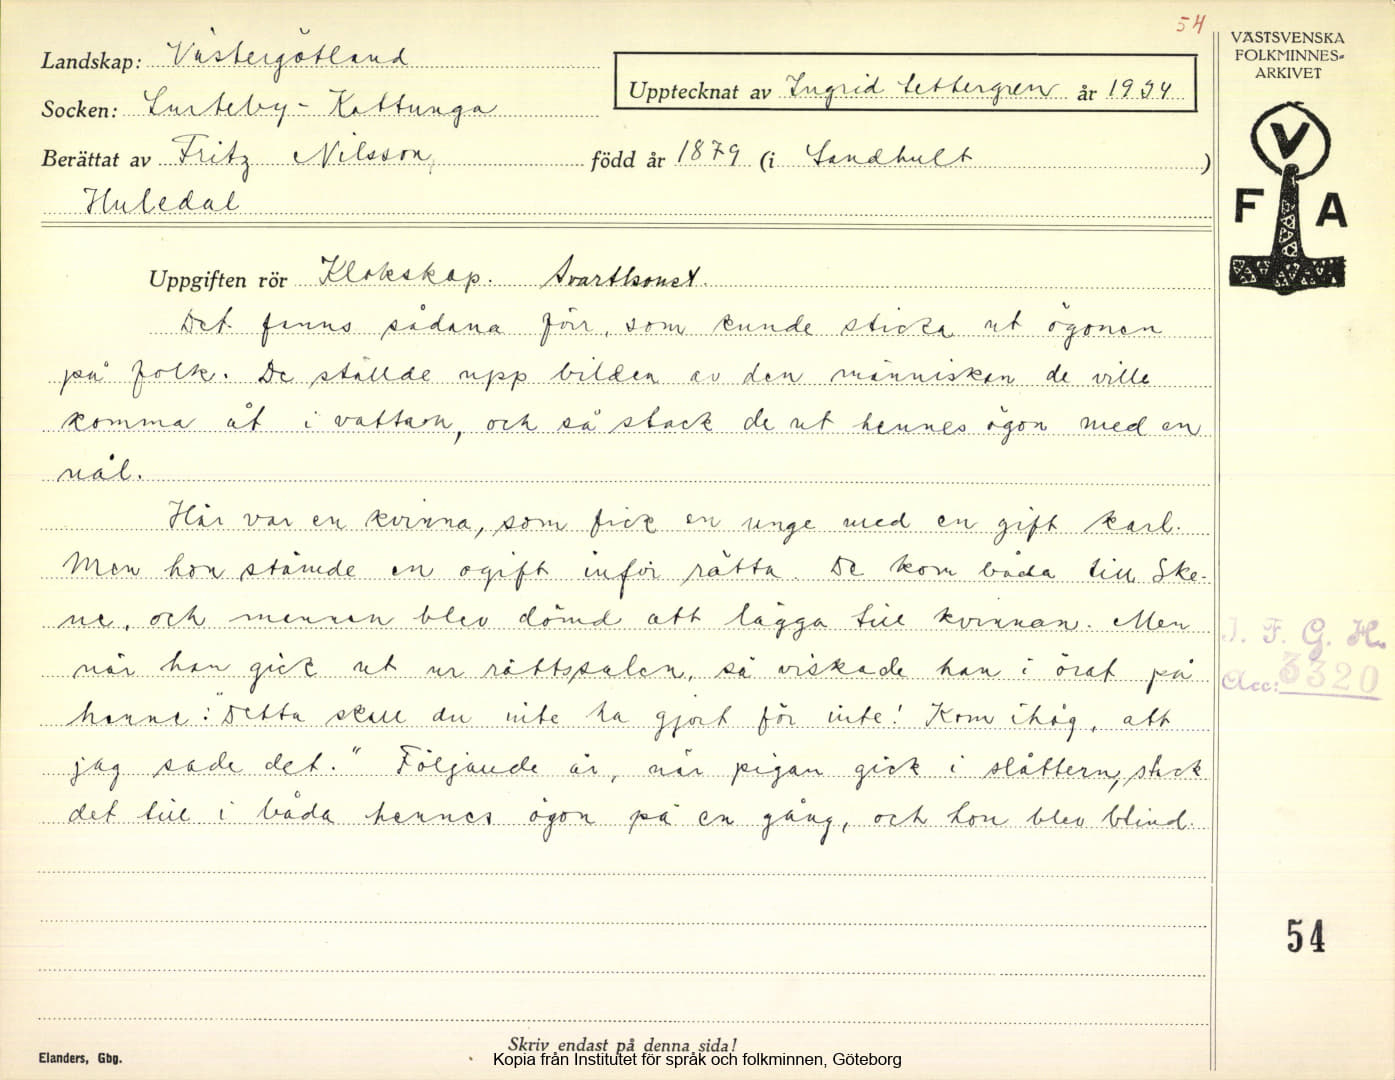 54
Landskap: Västergötland
Upptecknat av Ingrid Settergren år 1934
Socken: Surteby-Kattunga
Berättat av Fritz Nilsson, född år 1879 (i Sandhult )
Huledal
Uppgiften rör Klokskap. Svartkonst.
Det fanns sådana förr, som kunde sticka ut ögonen
på folk. De ställde upp bilden av den människan de ville
komma åt i vattnen, och så stack de ut hennes ögon med en
nål.
Här var en kvinna, som fick en unge med en gift karl.
Men hon stämde en ogift inför rätta. De kom båda till Ske-
ne, och mannen blev dömd att lägga till kvinnan. Men
när han gick ut ur rättssalen, så viskade han i örat på
henne: "Detta skall du inte ha gjort för inte! Kom ihåg, att
jag sade det." Följande år, när pigan gick i slåttern, stack
det till i båda hennes ögon på en gång, och hon blev blind.
Skriv endast på denna sida!
Elanders, Gbg.
Kopia från Institutet för språk och folkminnen, Göteborg
VÄSTSVENSKA
FOLKMINNES-
ARKIVET
V
F A
I. F. G. H.
Acc: 3320
54